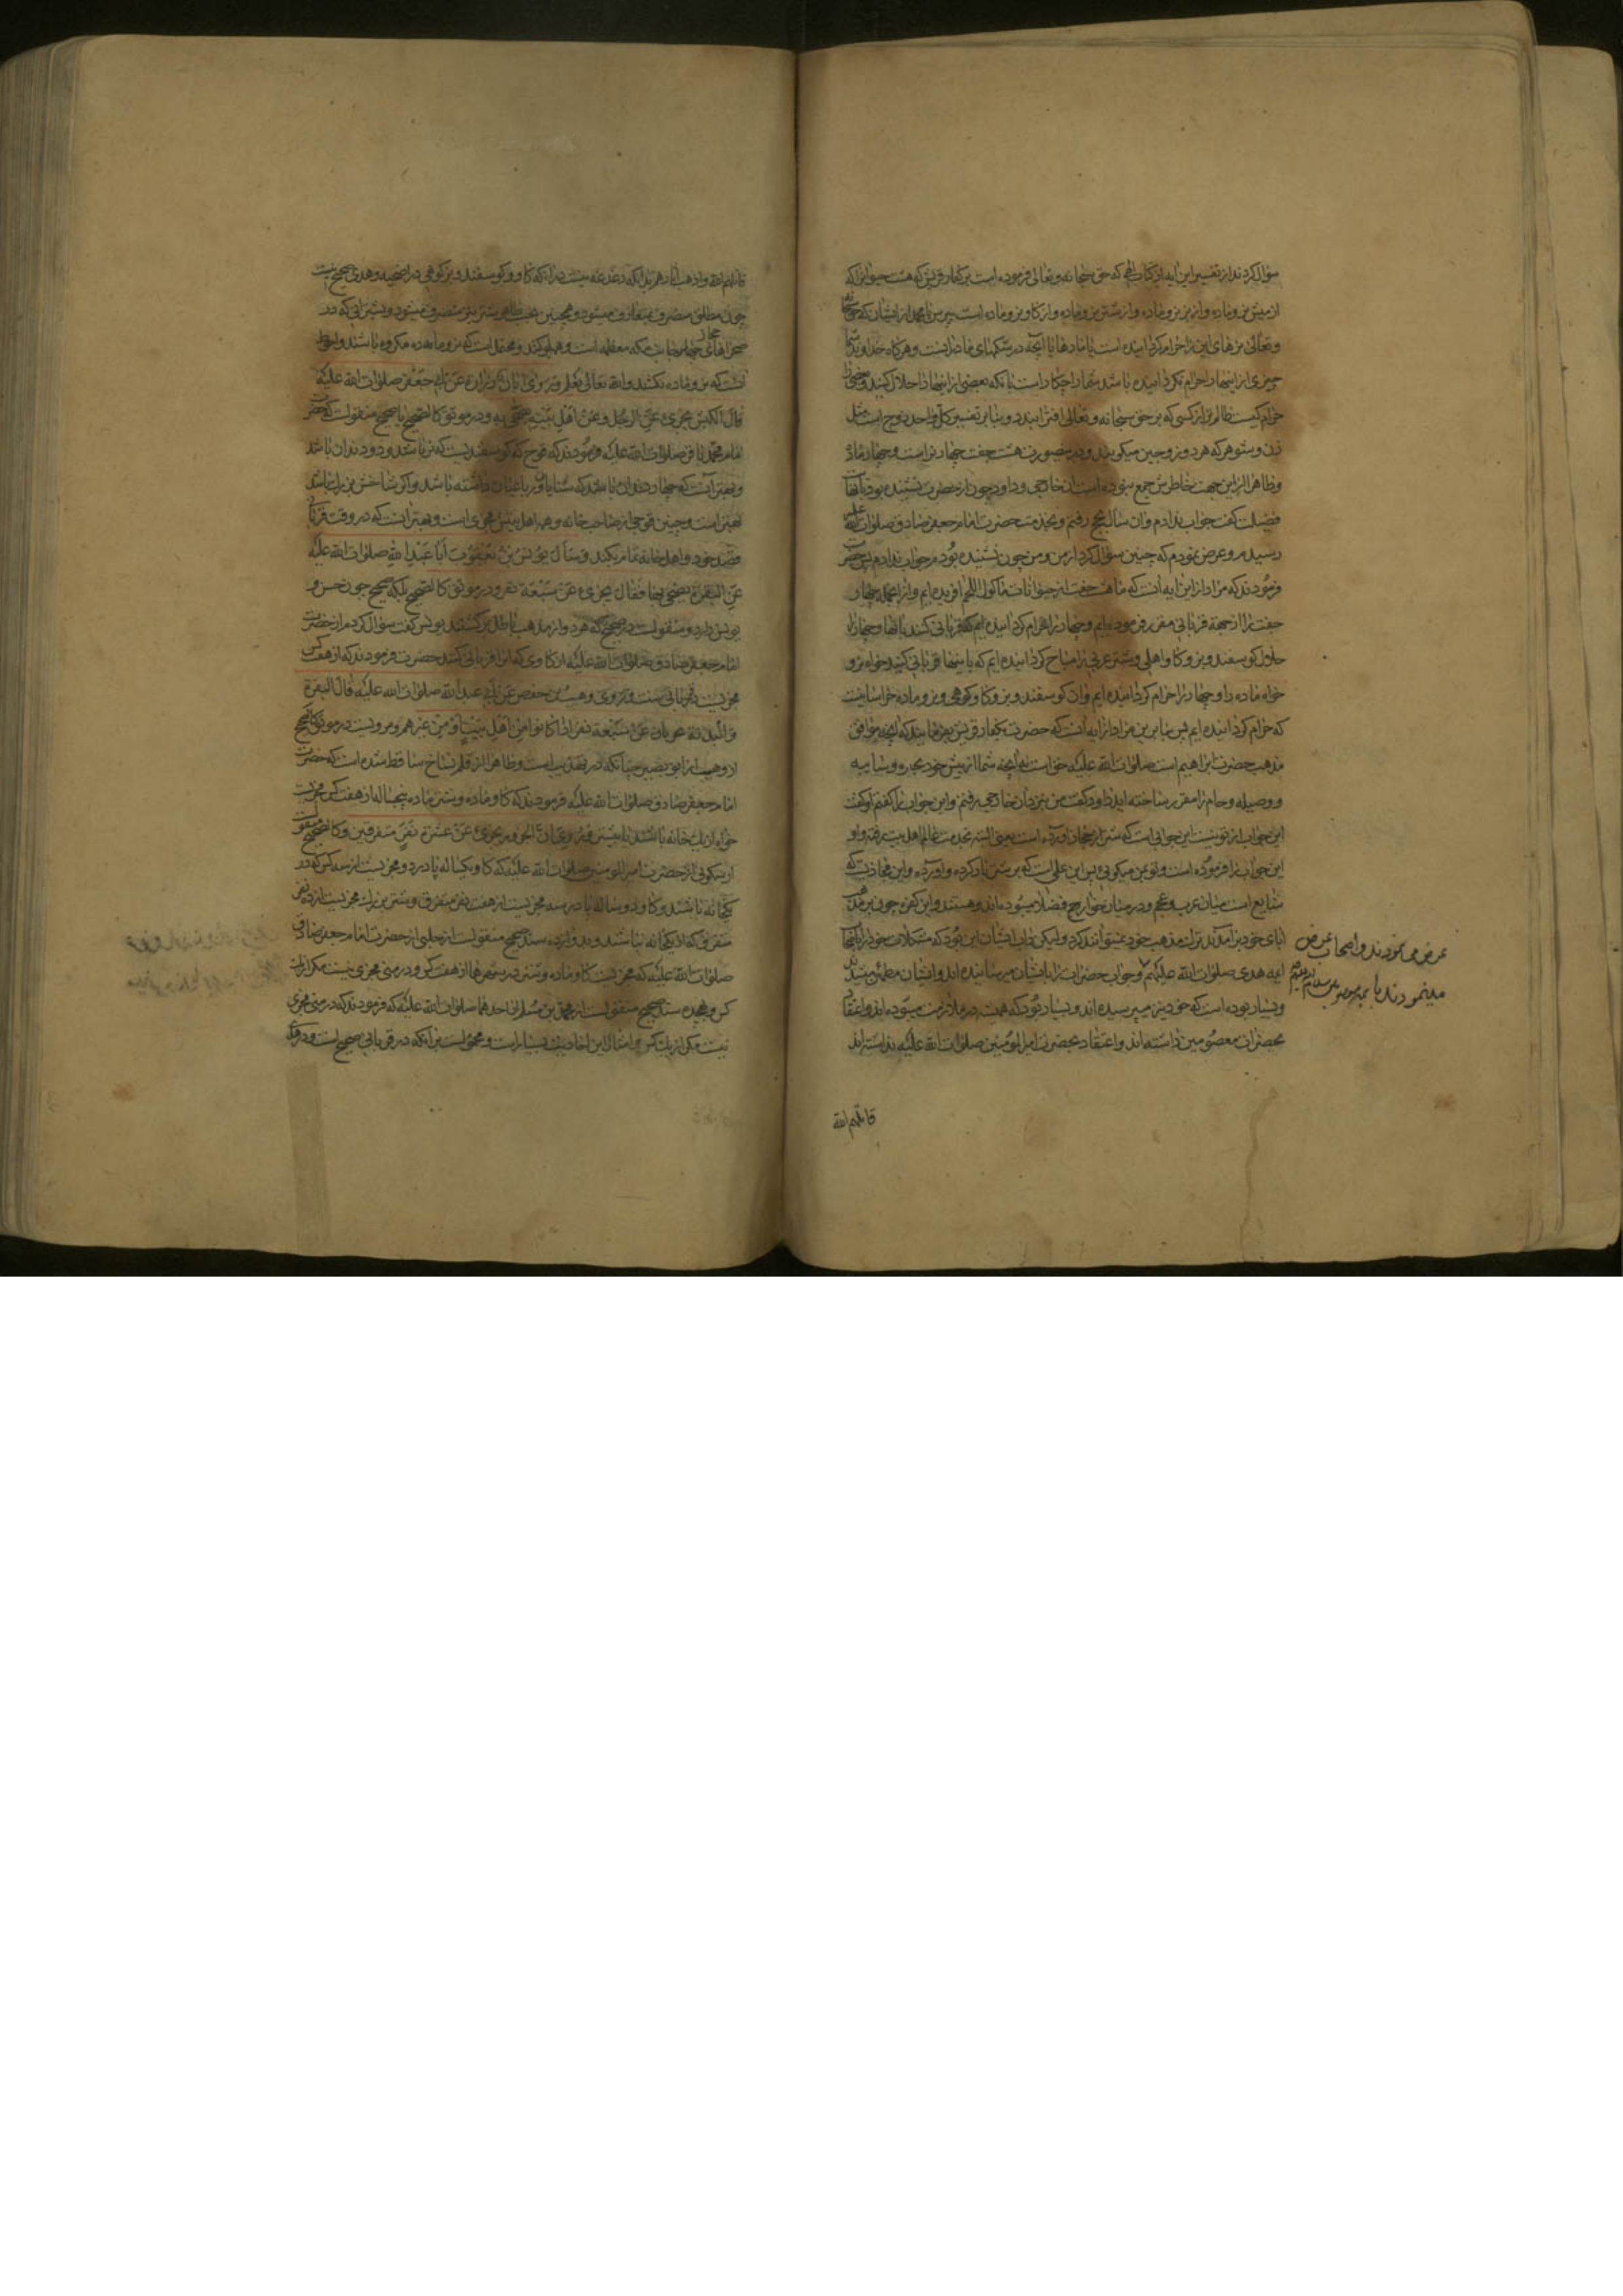 سؤال کردند از تفسیر این آیه از کتاب الهی که حق سبحانه و تعالی فرموده است بر کفار قریش که هشت حیوان را که
از میش نر و ماده و از بز نر و ماده و از شتر نر و ماده و از کاو نر و ماده است بپرس یا محمد از ایشان که حق سبحانه
و تعالی نرهای این را حرام کردانیده است یا مادها یا آنچه در شکمهای ماضرانست و هرکاه خداوند شما
چیزی از اینها را حرام نکردانیده باشد شما را چکار است بآنکه بعضی از اینها را حلال کنید و بعضی را
حرام کیست ظالم تر از کسی که بر حق سبحانه و تعالی افترا بندد و بنابر تفسیر کل واحد زوج است مثل
زن و شوهر که هر دو را زوجین میکویند و درین صورت هشت جفت چهار نر است و چهار ماده
و ظاهرا ازین جهت خاطرش جمع نبوده است آن خارجی و داود چون از حضرت نشنیده بود با آنهمه
فضیلت کفت جواب ندادم و آن سال بحج رفتم و بخدمت حضرت امام جعفر صادق صلوات الله علیه
رسیدم و عرض نمودم که چنین سؤال کرد از من و من چون نشنیده بودم جواب ندادم پس حضرت
فرمودند که مراد از این آیه آنست که ما هشت جفت از حیوانات مأکول اللحم آفریده ایم و از آنجمله چهار
جفت را از جهة قربانی مقرر فرموده ایم و چهار را حرام کردانیده ایم که قربانی کنند بآنها و چهار را
حلال کوسفند و بز و کاو اهلی و شتر عربی را مباح کردانیده ایم که باینها قربانی کنید خواه نر و
خواه ماده را و چهار را حرام کردانیده ایم و آن کوسفند و بز و کاو کوهی و نر و ماده خراسانیست
که حرام کردانیده ایم پس بنابرین مراد از آیه آنست که حضرت بکفار قریش بفرمایند که آنچه موافق
مذهب حضرت ابراهیم است صلوات الله علیه حق است نه آنچه شما از پیش خود بحیره و سائبه
و وصیله و حام را مقرر ساخته اید داود کفت من نزد آن خارجی رفتم و این جواب را کفتم او کفت
این جواب از تو نیست این جوابی است که شتر از حجاز آورده است یعنی البته بخدمت عالم اهل بیت رفته و او
این جواب را فرموده است و تو بمن میکوئی پس این علمی است که بر شتر بار کرده و آورده و این مجازیست که
شایع است میان عرب و عجم و در میان خوارج فضلا میبوده اند و هستند و این کفره چون بر مذهب
آبای خود برآمده اند ترک مذهب خود نمیتوانند کرد ولیکن داب ایشان این بود که مشکلات خود را باصحاب
ائمه هدی صلوات الله علیهم و جواب حضرات را بایشان میرسانیده اند و ایشان مطمئن میشدند
و بسیار بوده است که خود نیز میپرسیده اند و بسیار بود که همیشه در ملازمت میبوده اند و اعتقاد
بحضرات معصومین داشته اند و اعتقاد بحضرت امیر المؤمنین صلوات الله علیه نداشته اند
عرض می نمودند و اصحاب عرض
مینمودند با
قاتلهم الله
قاتلهم الله و اذهب آثارهم بدانکه دغدغه نیست در آنکه کاو و کوسفند و بز کوهی در اضحیه و هدی صحیح نیست
چون مطلق منصرف بمتعارف میشود و همچنین بحسب ظاهر شتر نیز منصرف میشود و بشترانی که در
صحراهای حجاز و جانب مکه معظمه است و همه کنند و محتمل است که نر و ماده مکروه باشند و احوط
آنست که نر و ماده نکشند و الله تعالی یعلم و روی ابان عن زرارة عن ابی جعفر صلوات الله علیه
قال الکبش یجزی عن الرجل و عن اهل بیته یضحی به و در موثق کالصحیح یا صحیح منقولست که حضرت
امام محمد باقر صلوات الله علیه فرمودند که قوچ که کوسفندیست که نر باشد و دو دندان باشد
و بهتر آنست که چهار دندان باشد که ثنایا و رباعیات داشته باشد و اکر شاخش بزرک باشد
بهتر است و چنین قوچی از صاحب خانه و همه اهل بیتش مجزی است و بهتر آنست که در وقت قربانی
قصد خود و اهل خانه تمام بکند و سأل یونس بن یعقوب ابا عبد الله صلوات الله علیه
عن البقرة یضحی بها فقال یجزی عن سبعة نفر و در موثق کالصحیح بلکه صحیح چون حسن و
یونس دارد و منقولست در صحیح که هر دو از مذهب باطل برکشتند یونس کفت سؤال کردم از حضرت
امام جعفر صادق صلوات الله علیه از کاوی که آنرا قربانی کنند حضرت فرمودند که از هفت کس
مجزیست قربانی سنت و روی وهیب بن حفص عن ابی عبد الله صلوات الله علیه قال البقرة
و البدنة یجزیان عن سبعة نفر اذا کانوا من اهل بیت او من غیرهم و مرویست در موثق کالصحیح
از وهیب از ابو بصیر چنانکه در تهذیب است و ظاهرا از قلم نساخ ساقط شده است که حضرت
امام جعفر صادق صلوات الله علیه فرمودند که کاو ماده و شتر ماده پنجساله از هفت کس مجزیست
خواه از یک خانه باشند یا بیشتر و روی ان الجزور یجزی عن عشرة نفر متفرقین و کالصحیح منقولست
از سکونی از حضرت امیر المؤمنین صلوات الله علیه که کاو یکساله یا در دو مجزیست از سه کس که در
یکخانه باشند و کاو دو ساله یا در سه مجزیست از هفت نفر متفرق و شتر بزرک مجزیست از ده نفر
متفرق که از یکخانه نباشند و بدوازده سند صحیح منقولست از حلبی از حضرت امام جعفر صادق
صلوات الله علیه که مجزیست کاو ماده و شتر در شهرها از هفت کس و در منی مجزی نیست مکر از یک
کس و بهجده سند صحیح منقولست از محمد بن مسلم از احدهما صلوات الله علیه که فرمودند که در منی مجزی
نیست مکر از یک کس و امثال این احادیث بسیار است و محمولست بر آنکه در قربانی صحیح است و در هدی